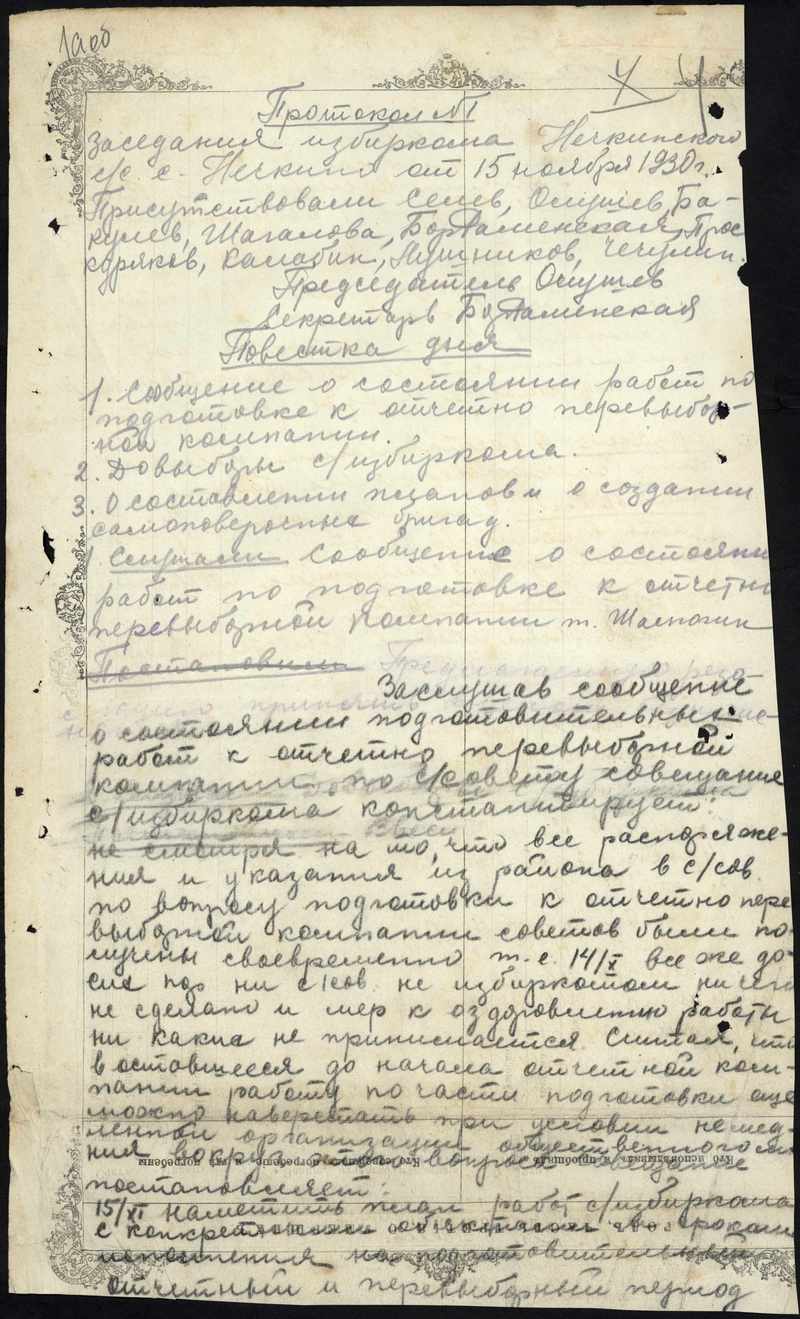 1 а об
4
Протокол №1
Заседания избиркома Нечкинского
с/с с. Нечкино от 15 ноября 1930 г.
Присутствовали Селев, Осушев, Ба-
кулев, Шагалова, Бор Раменская, Прос
куряков, Калабин, Лушников, Чечулин.
Председатель Осушев
Секретарь Бор Раменская
Повестка дня
1. Сообщение о состоянии работ по
подготовке к отчетно перевыбор-
ной компании.
2. Довыборы с/избиркома.
3. О составлении планов и о создании
самопроверочных бригад.
1. Слушали Сообщение о состояни
работ по подготовке к отчетно
перевыборной компании т.
Постановили
Заслушав сообщение
о состоянии подготовительных
работ к отчетно перевыборной
компании по с/совету совещание
с/избиркома констатирует:
не смотря на то, что все распоряже-
ния и указания из района в с/сов.
по вопросу подготовки к отчетно пере
выборной компании советов были по-
лучены своевременно т.е. 14/X все же до
сих пор ни с/сов. не избиркомом ничего
не сделано и мер к оздоровлению работы
ни каких не принимается. Считая, что
в оставшееся до начала отчетной ком-
пании работу по части подготовки еще
можно наверстать при условии немед-
ленной организации общественного мн
ния вокруг этого вопроса совещание
Кто исповѣдывалъ и пріобщалъ
Кто совершалъ погребеніе и гдѣ погребены
постановляет:
15/XI наметить план работ с/избиркома
с конкретными
исполнения на подготовительный
отчетный и перевыборный период